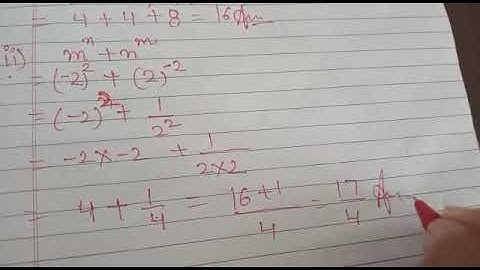 = 4 + 4 + 8 = 16 Ans
ii) m^n + n^m
= (-2)^2 + (2)^-2
= (-2)^2 + 1/2^2
= -2 × -2 + 1/(2×2)
= 4 + 1/4 = (16+1)/4 - 17/4